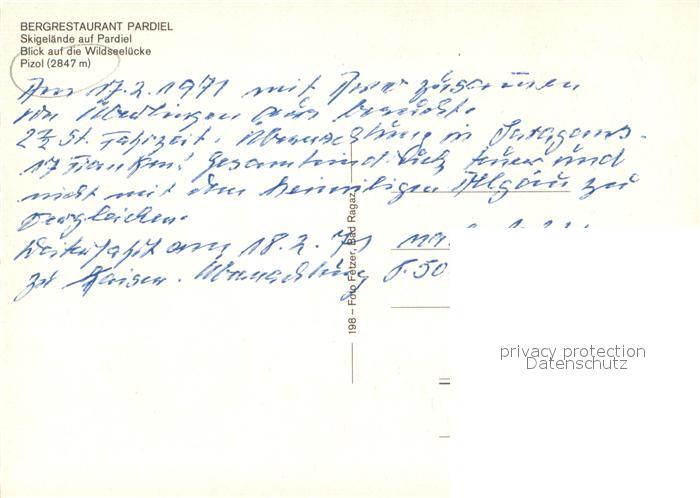 BERGRESTAURANT PARDIEL
Skigelände auf Pardiel
Blick auf die Wildseelücke
Pizol (2847 m)
Am 17.2.1971 mit zusammen
von Überlingen aus besucht.
2½ St. Fahrzeit. Übernachtung in
17 Franken! Gesamteindruck teuer und
nicht mit dem heimeligen Allgäu zu
vergleichen.
Weiterfahrt am 18.2.71
zu Übernachtung 8.50
198 – Foto Fetzer, Bad Ragaz
privacy protection
Datenschutz